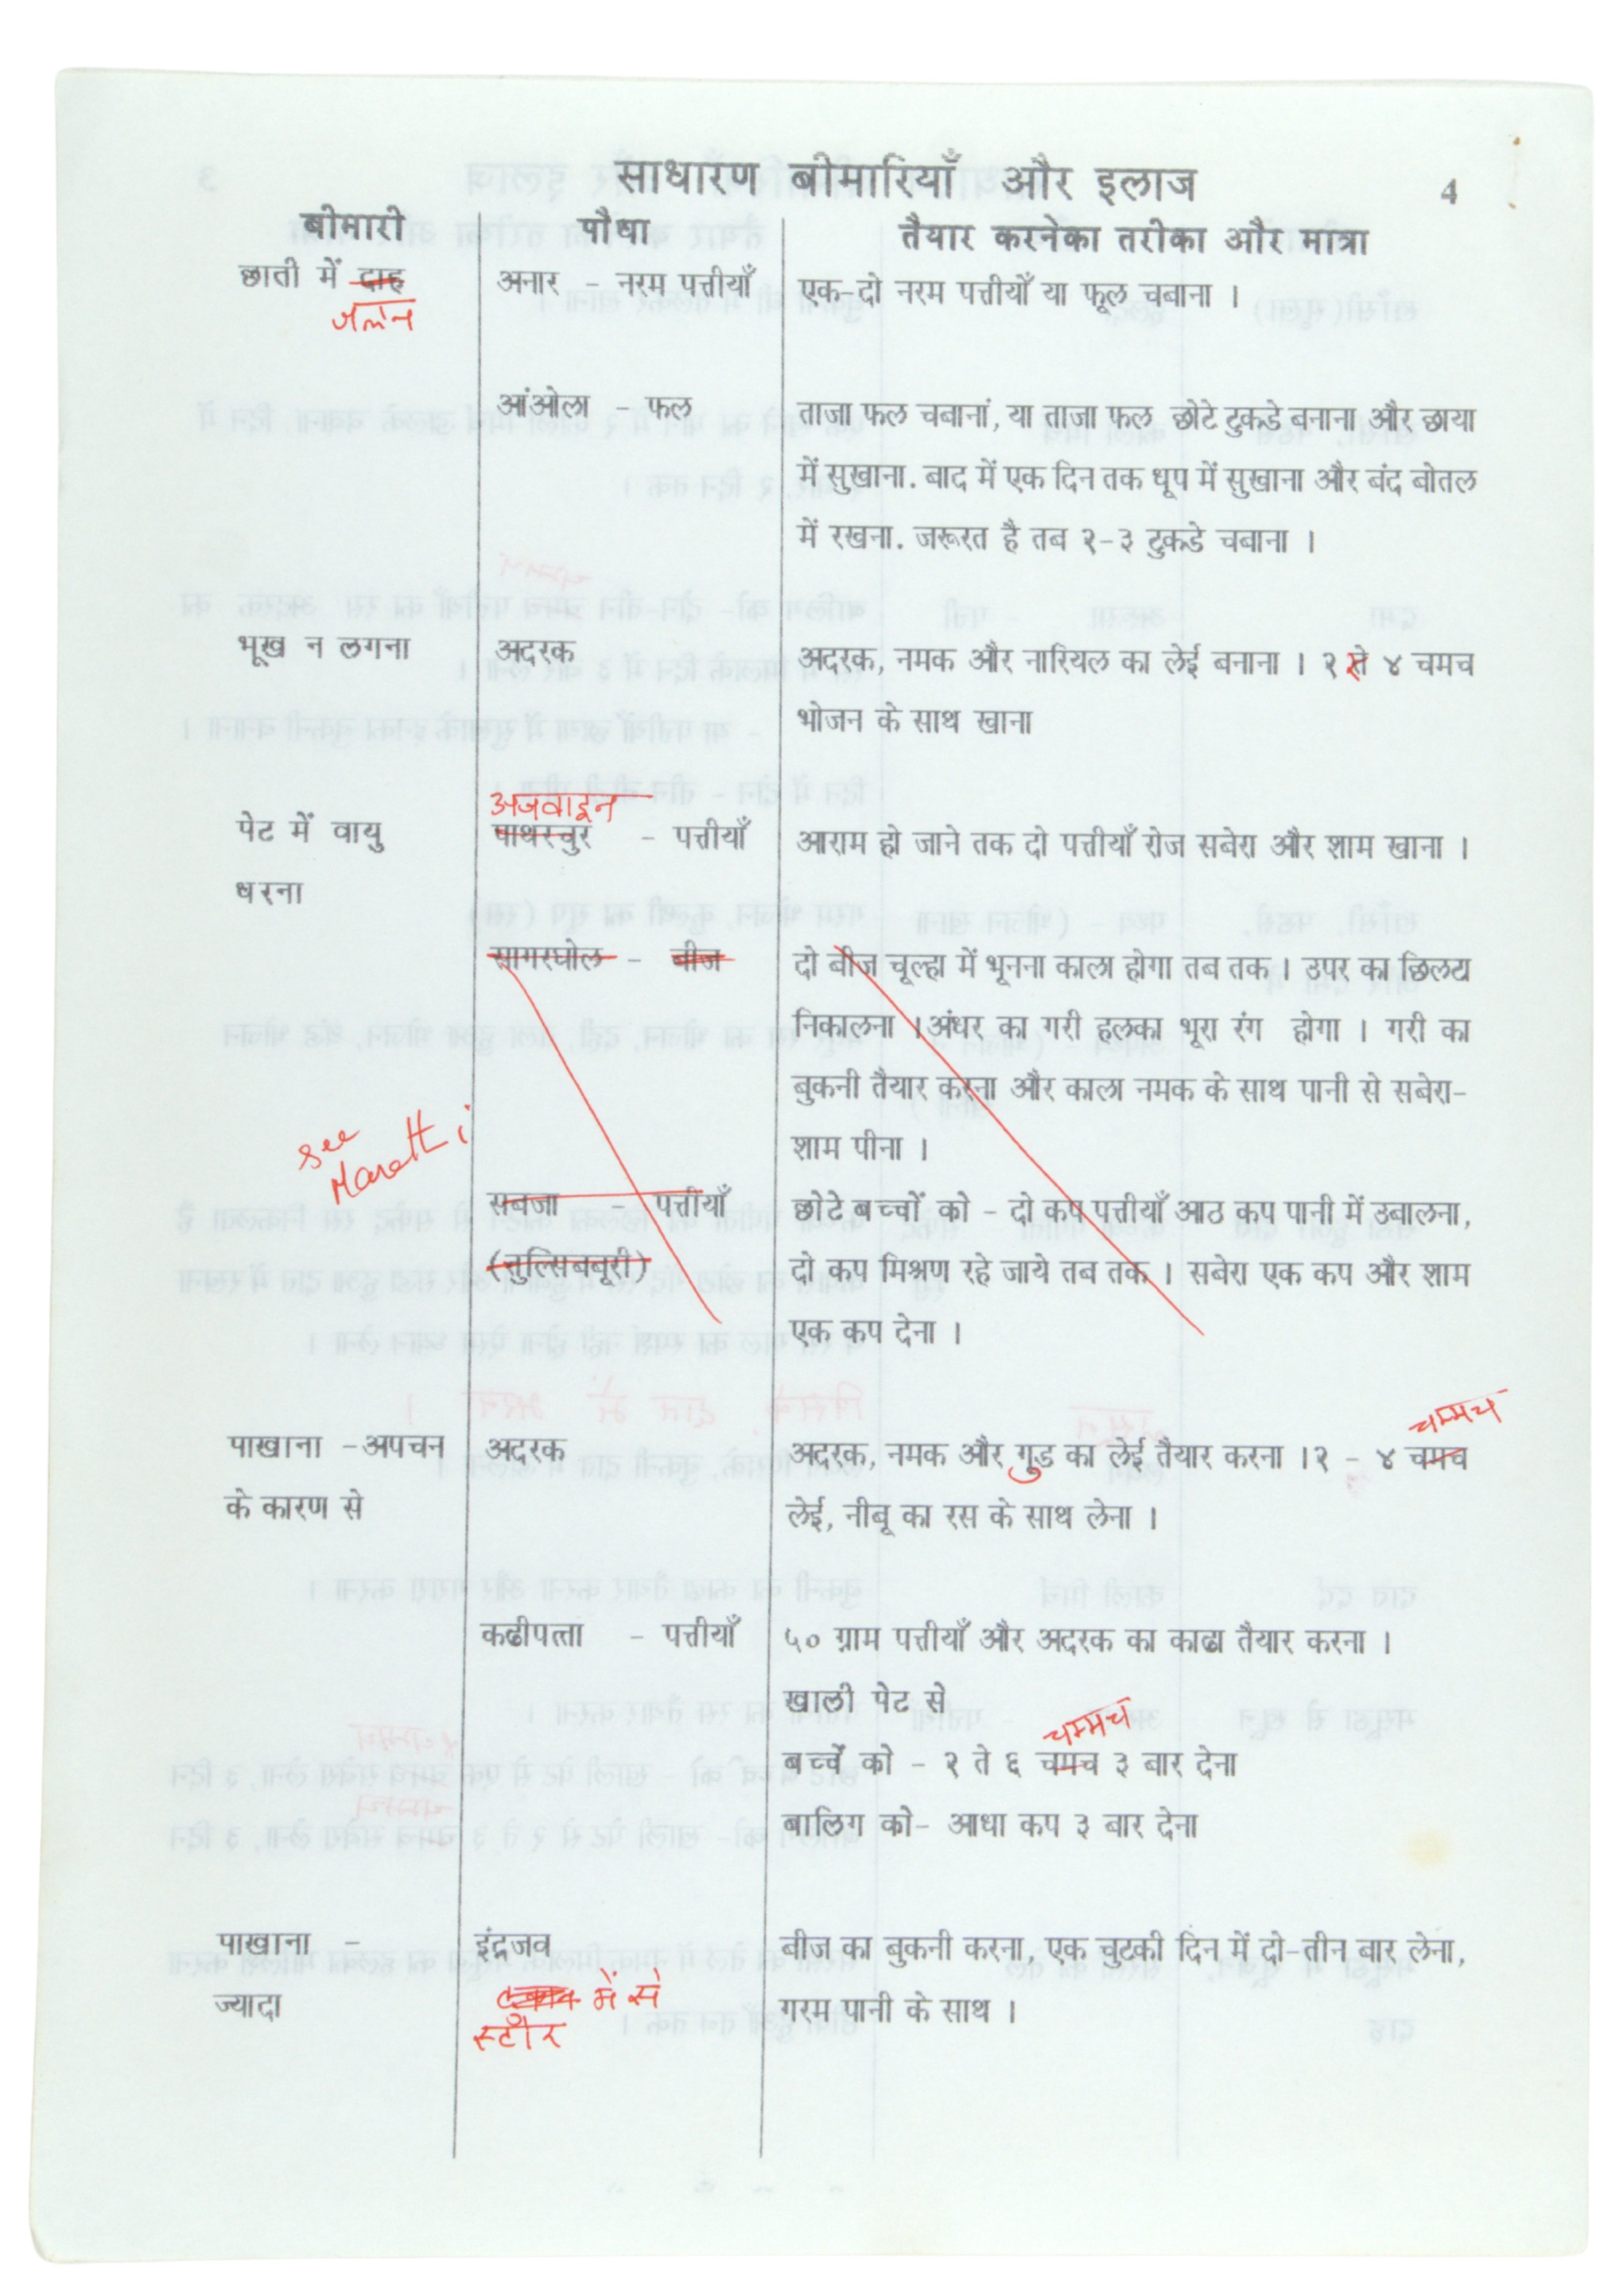 साधारण बीमारियाँ और इलाज 4
बीमारी पौधा तैयार करनेका तरीका और मात्रा
छाती में दाह अनार - नरम पत्तीयाँ एक-दो नरम पत्तीयाँ या फूल चबाना ।
जलन
आंओला - फल ताजा फल चबानां, या ताजा फल छोटे टुकडे बनाना और छाया
में सुखाना. बाद में एक दिन तक धूप में सुखाना और बंद बोतल
में रखना. जरूरत है तब २-३ टुकडे चबाना ।
भूख न लगना अदरक अदरक, नमक और नारियल का लेई बनाना । २ ते ४ चमच
भोजन के साथ खाना
अजवाइन
पेट में वायु पाथरचुर - पत्तीयाँ आराम हो जाने तक दो पत्तीयाँ रोज सबेरा और शाम खाना ।
धरना
सागरघोल - बीज दो बीज चूल्हा में भूनना काला होगा तब तक । उपर का छिलटा
निकालना । अंधर का गरी हलका भूरा रंग होगा । गरी का
बुकनी तैयार करना और काला नमक के साथ पानी से सबेरा-
शाम पीना ।
see
Marathi
सबजा - पत्तीयाँ छोटे बच्चों को - दो कप पत्तीयाँ आठ कप पानी में उबालना,
(तुल्सिबबूरी) दो कप मिश्रण रहे जाये तब तक । सबेरा एक कप और शाम
एक कप देना ।
चम्मच
पाखाना - अपचन अदरक अदरक, नमक और गुड का लेई तैयार करना । २ - ४ चमच
के कारण से लेई, नीबू का रस के साथ लेना ।
कढीपत्ता - पत्तीयाँ ५० ग्राम पत्तीयाँ और अदरक का काढा तैयार करना ।
खाली पेट से
चम्मच
बच्चें को - २ ते ६ चमच ३ बार देना
बालिग को- आधा कप ३ बार देना
पाखाना - इंद्रजव बीज का बुकनी करना, एक चुटकी दिन में दो-तीन बार लेना,
ज्यादा में से गरम पानी के साथ ।
स्टौर